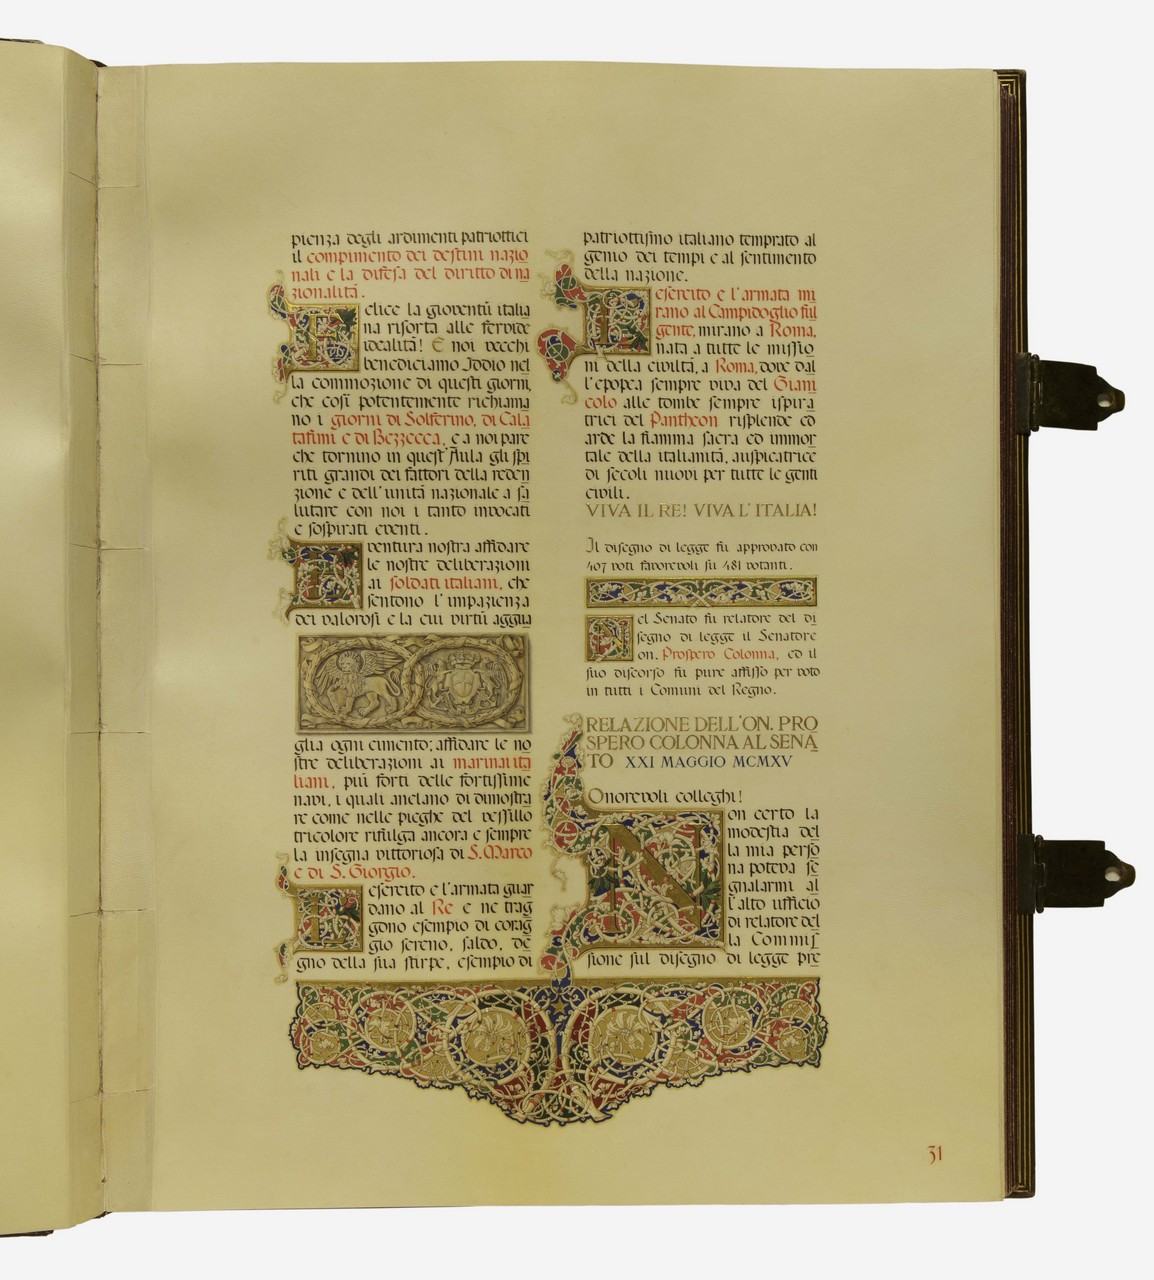 pienza degli ardimenti patriottici
il compimento dei destini nazio
nali e la difesa del diritto di na
zionalità.
Felice la gioventù italia
na risorta alle fervide
idealità! E noi vecchi
benediciamo Iddio nel
la commozione di questi giorni,
che così potentemente richiama
no i giorni di Solferino, di Cala
tafimi e di Bezzecca, e a noi pare
che tornino in quest'Aula gli spi
riti grandi dei fattori della reden
zione e dell'unità nazionale a sa
lutare con noi i tanto invocati
e sospirati eventi.
ventura nostra affidare
le nostre deliberazioni
ai soldati italiani, che
sentono l'impazienza
dei valorosi e la cui virtù aggua
glia ogni cimento; affidare le no
stre deliberazioni ai marinai ita
liani, più forti delle fortissime
navi, i quali anelano di dimostra
re come nelle pieghe del vessillo
tricolore rifulga ancora e sempre
la insegna vittoriosa di S. Marco
e di S. Giorgio.
L'esercito e l'armata guar
dano al Re e ne trag
gono esempio di corag
gio sereno, saldo, de
gno della sua stirpe, esempio di
patriottismo italiano temprato al
genio dei tempi e al sentimento
della nazione.
L'esercito e l'armata mi
rano al Campidoglio ful
gente, mirano a Roma,
nata a tutte le missio
ni della civiltà, a Roma, dove dal
l'epopea sempre viva del Giani
colo alle tombe sempre ispira
trici del Pantheon risplende ed
arde la fiamma sacra ed immor
tale della italianità, auspicatrice
di secoli nuovi per tutte le genti
civili.
VIVA IL RE! VIVA L'ITALIA!
Il disegno di legge fu approvato con
407 voti favorevoli su 481 votanti.
Nel Senato fu relatore del di
segno di legge il Senatore
on. Prospero Colonna, ed il
suo discorso fu pure affisso per voto
in tutti i Comuni del Regno.
RELAZIONE DELL'ON. PRO
SPERO COLONNA AL SENA
TO XXI MAGGIO MCMXV
Onorevoli colleghi!
Non certo la
modestia del
la mia perso
na poteva se
gnalarmi al
l'alto ufficio
di relatore del
la Commis
sione sul disegno di legge pre
31